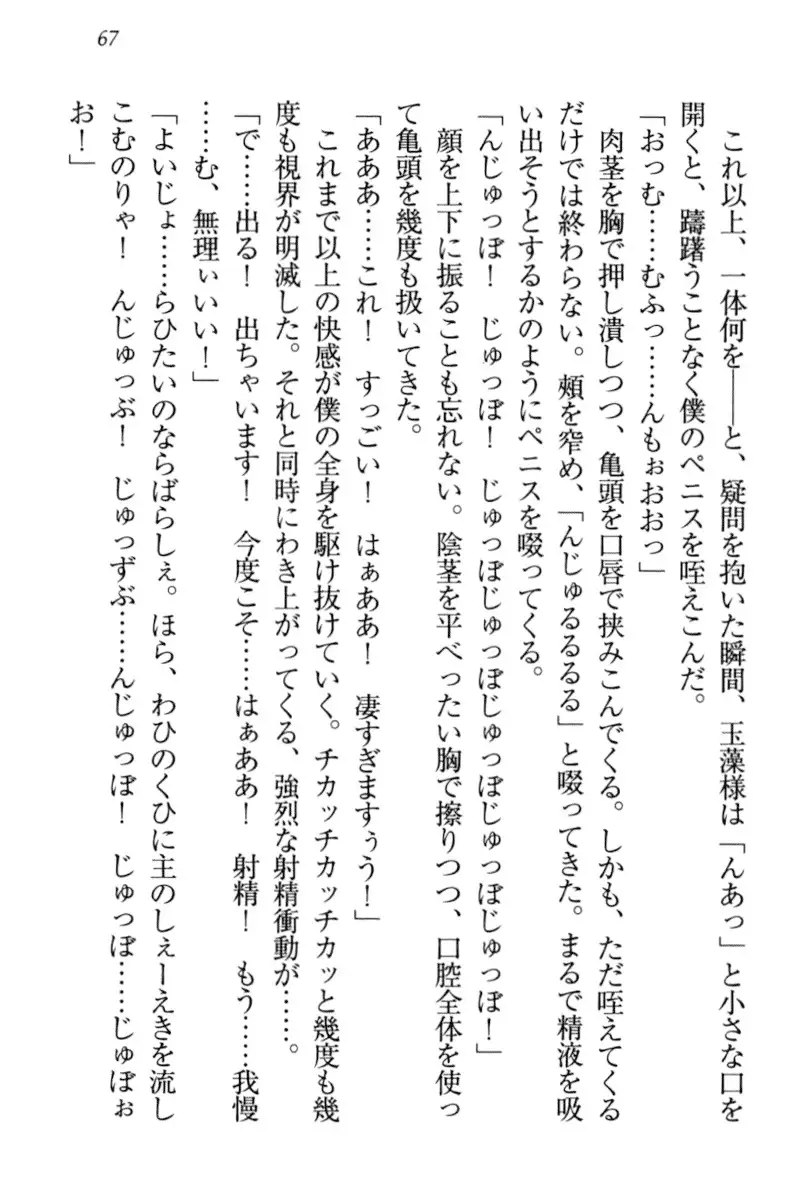 67
これ以上、一体何を――と、疑問を抱いた瞬間、玉藻様は「んあっ」と小さな口を
開くと、躊躇うことなく僕のペニスを咥えこんだ。
「おっむ……むふっ……んもぉおおっ」
肉茎を胸で押し潰しつつ、亀頭を口唇で挟みこんでくる。しかも、ただ咥えてくる
だけでは終わらない。頰を窄め、「んじゅるるるる」と啜ってきた。まるで精液を吸
い出そうとするかのようにペニスを啜ってくる。
「んじゅっぽ！　じゅっぽ！　じゅっぽじゅっぽじゅっぽじゅっぽ！」
顔を上下に振ることも忘れない。陰茎を平べったい胸で擦りつつ、口腔全体を使っ
て亀頭を幾度も扱いてきた。
「あああ……これ！　すっごい！　はぁああ！　凄すぎますぅう！」
これまで以上の快感が僕の全身を駆け抜けていく。チカッチカッチカッと幾度も幾
度も視界が明滅した。それと同時にわき上がってくる、強烈な射精衝動が……。
「で……出る！　出ちゃいます！　今度こそ……はぁああ！　射精！　もう……我慢
……む、無理ぃいい！」
「よいじょ……らひたいのならばらしぇ。ほら、わひのくひに主のしぇーえきを流し
こむのりゃ！　んじゅっぶ！　じゅっずぶ……んじゅっぽ！　じゅっぽ……じゅぽぉ
お！」